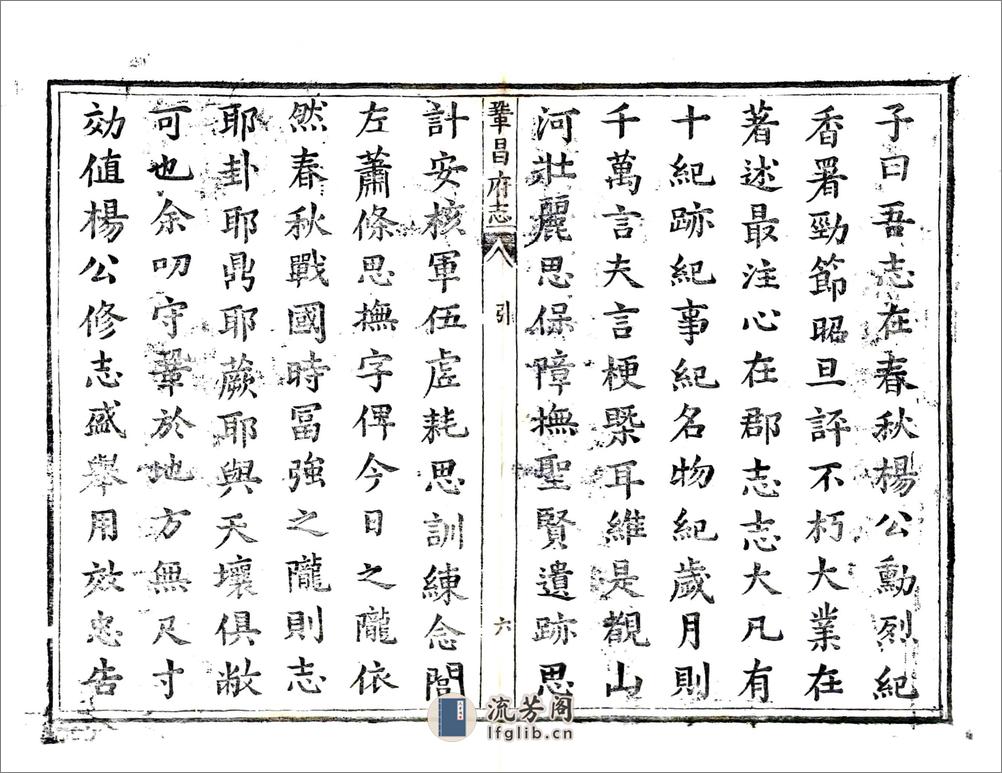 子曰吾志在春秋楊公勳烈紀
香署勁節昭旦評不朽大業在
著述最注心在郡志志大凡有
十紀跡紀事紀名物紀歲月則
千萬言夫言梗槩耳維是覩山
河壯麗思保障撫聖賢遺跡思
鞏昌府志 引 六
計安核軍伍虛耗思訓練念閭
左蕭條思撫字俾今日之隴依
然春秋戰國時冨強之隴則志
耶卦耶鼎耶蕨耶與天壤俱敝
可也余叨守鞏於地方無尺寸
効值楊公修志盛舉用效忠告
流芳阁
lfglib.cn